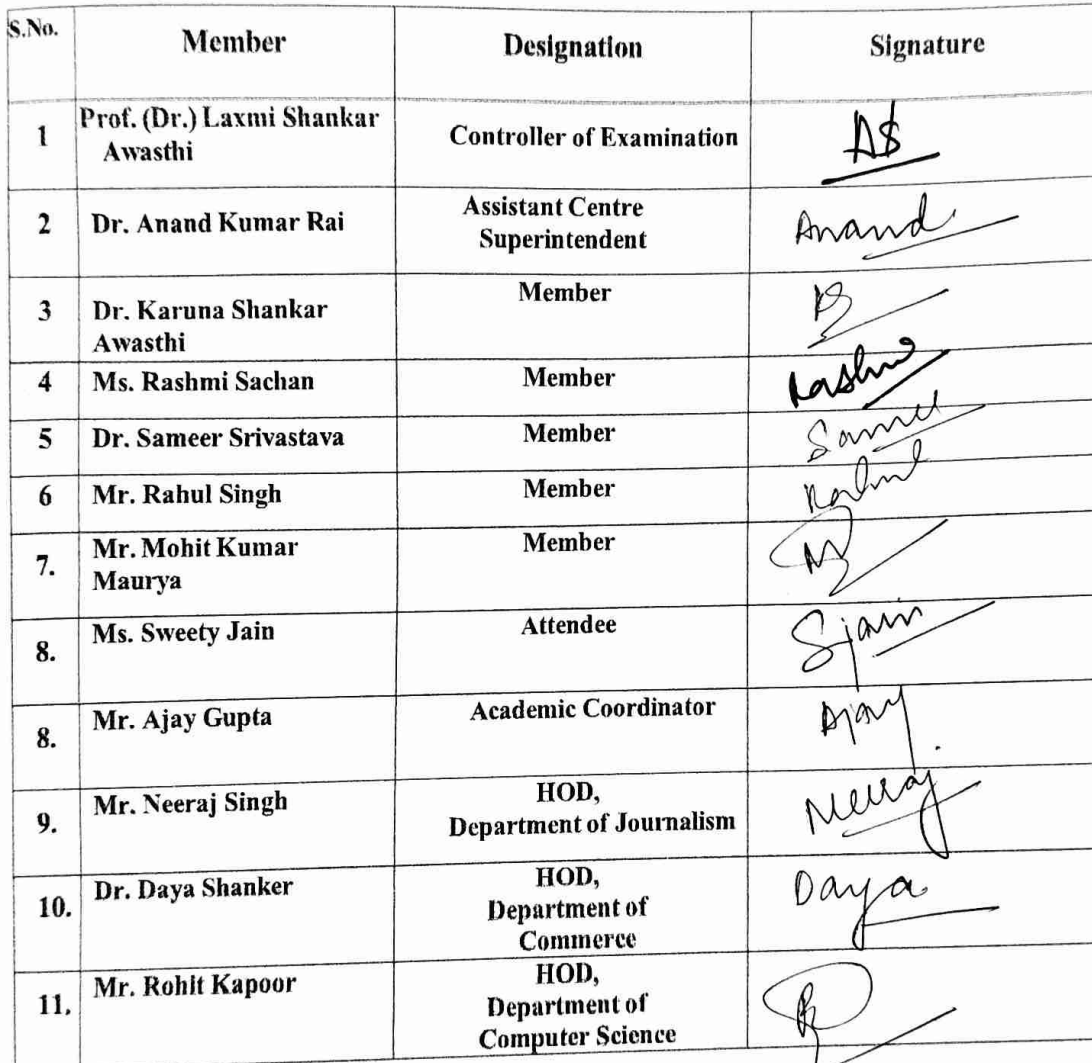 S.No. Member Designation Signature
1 Prof. (Dr.) Laxmi Shankar
Awasthi Controller of Examination
2 Dr. Anand Kumar Rai Assistant Centre
Superintendent Anand
3 Dr. Karuna Shankar
Awasthi Member
4 Ms. Rashmi Sachan Member Rashmi
5 Dr. Sameer Srivastava Member
6 Mr. Rahul Singh Member Rahul
7. Mr. Mohit Kumar
Maurya Member
8. Ms. Sweety Jain Attendee Sjain
8. Mr. Ajay Gupta Academic Coordinator Ajay
9. Mr. Neeraj Singh HOD,
Department of Journalism Neeraj
10. Dr. Daya Shanker HOD,
Department of
Commerce Daya
11. Mr. Rohit Kapoor HOD,
Department of
Computer Science